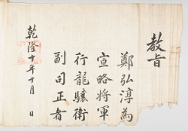 教旨
鄭弘淳為
宣略將軍
行龍驤衛
副司正者
乾隆十年十月 日